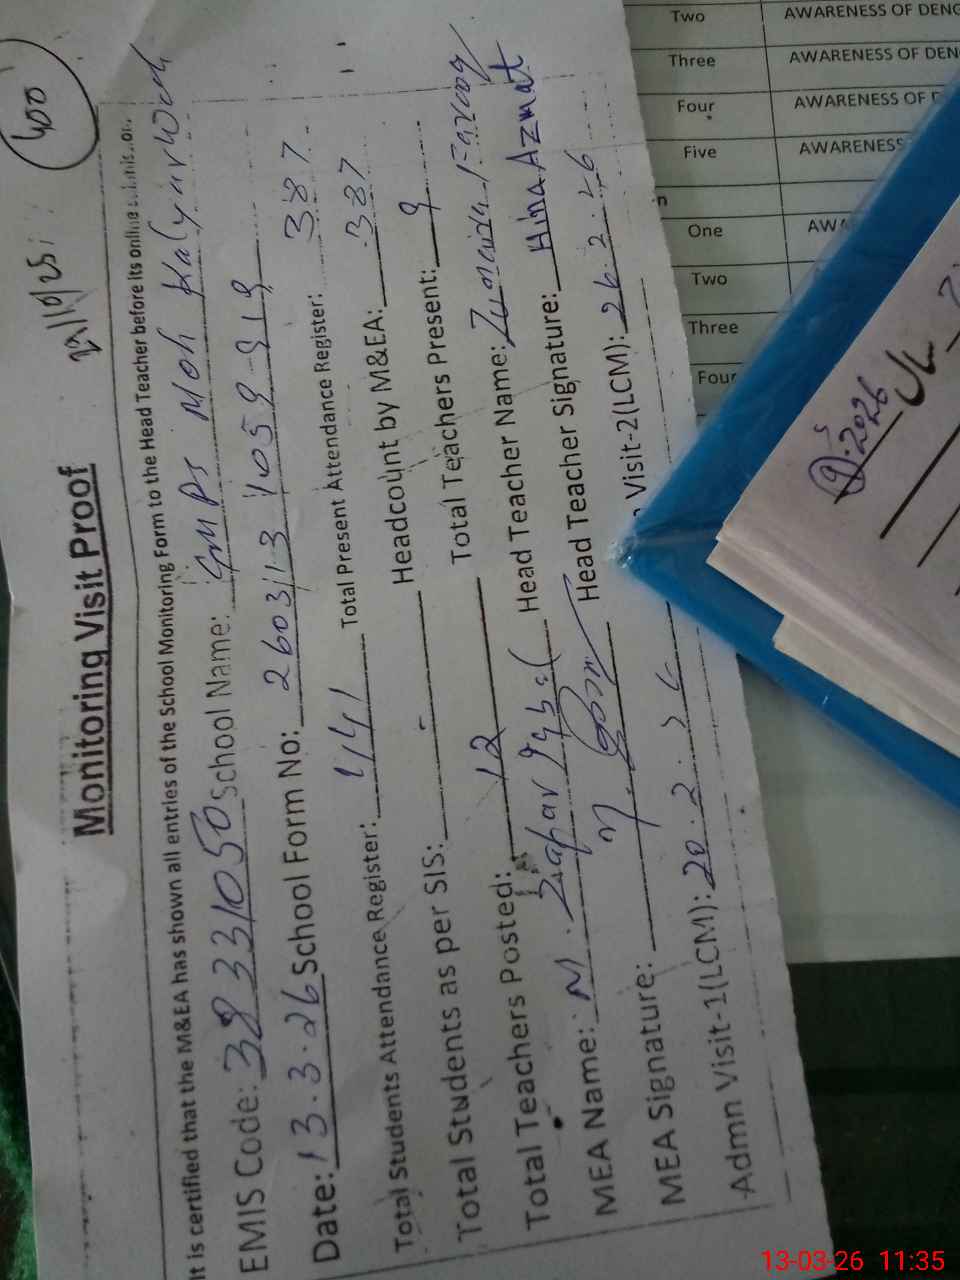 Monitoring Visit Proof
It is certified that the M&EA has shown all entries of the School Monitoring Form to the Head Teacher before its online
EMIS Code: 38331050 School Name: GMPS Moh
Date: 13.3.26 School Form No: 260313
Total Students Attendance Register: 441 Total Present Attendance Register: 387
Total Students as per SIS: - Headcount by M&EA: 387
Total Teachers Posted: 12 Total Teachers Present: 9
MEA Name: M. Zafar Iqbal Head Teacher Name: Zunaira Farooq
MEA Signature: Head Teacher Signature: Hina Azmat
Admn Visit-1(LCM): 20.2.26 Visit-2(LCM): 26.2.26
Two AWARENESS OF
Three AWARENESS OF
Four AWARENESS OF
Five AWARENESS
One
Two
Three
Four
2026
13-03-26 11:35